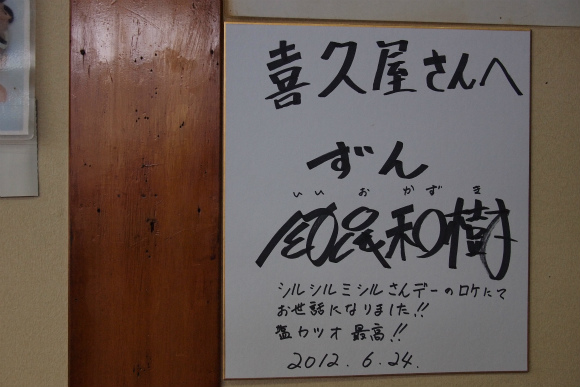 喜久屋さんへ
ずん
いいおかずき
飯尾和樹
シルシルミシルさんデーのロケにて
お世話になりました!!
塩カツオ 最高!!
2012.6.24.